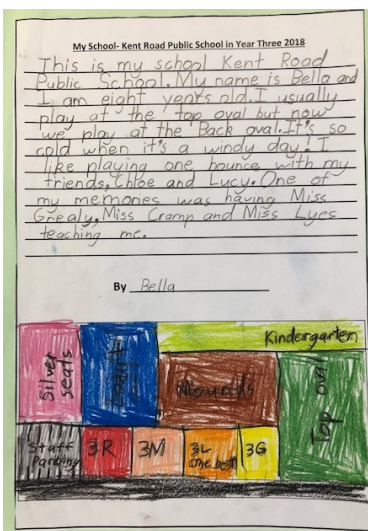 My School- Kent Road Public School in Year Three 2018
This is my school Kent Road
Public School. My name is Bella and
I am eight years old. I usually
play at the top oval but now
we play at the Back oval. It's so
cold when it's a windy day! I
like playing one bounce with my
friends, Chloe and Lucy. One of
my memories was having Miss
Grealy, Miss Cramp and Miss Lyes
teaching me.
By Bella
Kindergarten
Silver
seats
Mounds
Top oval
Staff
Parking
3R
3M
3L
(the best)
3G